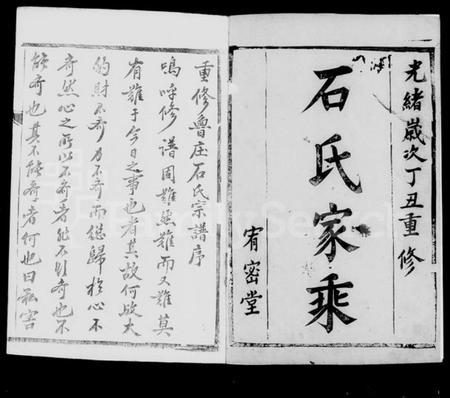 光緒歲次丁丑重修
石氏家乘
宥密堂
重修魯庄石氏宗譜序
嗚呼修譜固難然難而又難莫
有難于今日之事也者其故何歟大
約財不齊力不齊而總歸於心不
齊然心之所以不齊者能不引齊也不
能齊也其不能齊者何也曰私害